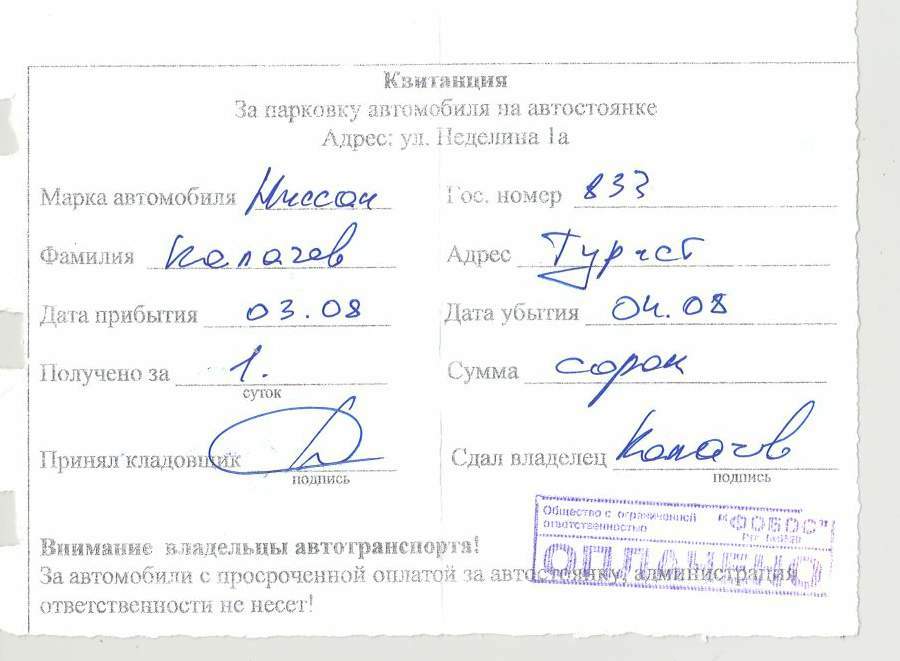 Квитанция
За парковку автомобиля на автостоянке
Адрес: ул. Неделина 1а
Марка автомобиля Ниссан Гос. номер 833
Фамилия Калачев Адрес Турист
Дата прибытия 03.08 Дата убытия 04.08
Получено за 1. Сумма сорок
суток
Принял кладовщик Сдал владелец Калачев
подпись подпись
Общество с ограниченной "ФОБОС"
ответственностью
ОПЛАЧЕНО
Внимание владельцы автотранспорта!
За автомобили с просроченной оплатой за автостоянку, администрация
ответственности не несет!